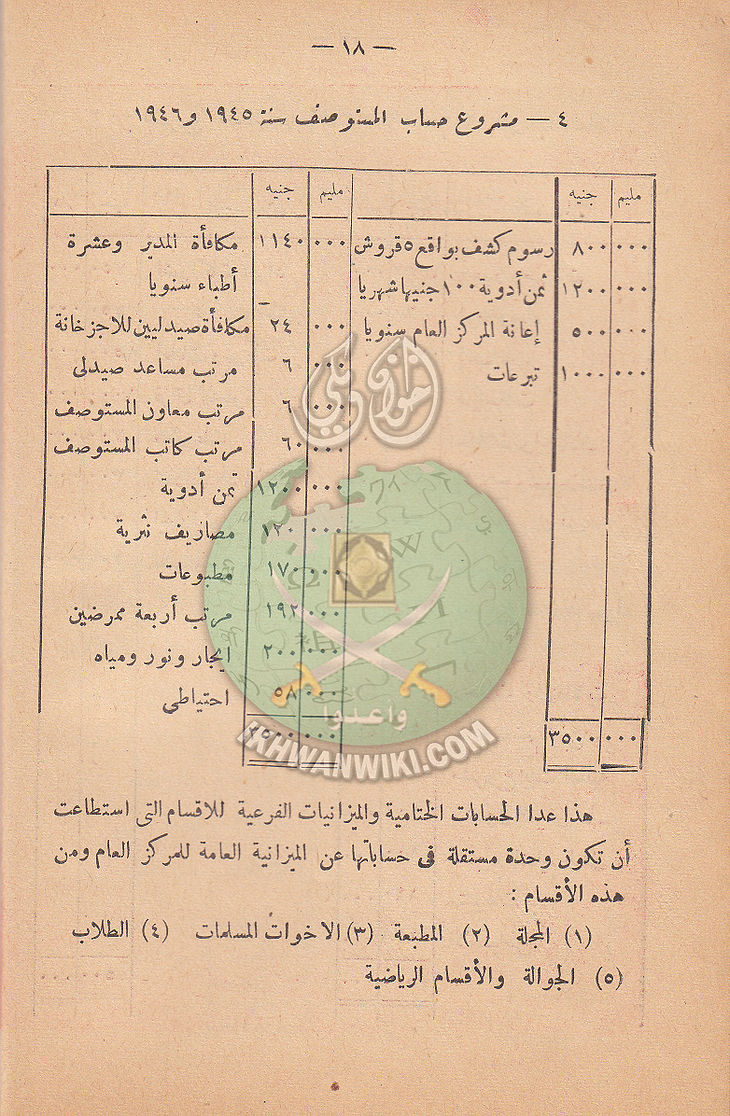 — ١٨ —
٤ — مشروع حساب المستوصف سنة ١٩٤٥ و١٩٤٦
مليم جنيه مليم جنيه
٠٠٠ ٨٠٠ رسوم كشف بواقع ٥ قروش ٠٠٠ ١١٤٠ مكافأة المدير وعشرة
٠٠٠ ١٢٠٠ ثمن أدوية ١٠٠ جنيها شهريا أطباء سنويا
٠٠٠ ٥٠٠ إعانة المركز العام سنويا ٠٠٠ ٢٤ مكافأة صيدليين للاجزخانة
٠٠٠ ١٠٠٠ تبرعات ٠٠٠ ٦ مرتب مساعد صيدلى
٠٠٠ ٦ مرتب معاون المستوصف
٠٠٠ ٦٠ مرتب كاتب المستوصف
٠٠٠ ١٢٠٠ ثمن أدوية
٠٠٠ ١٢٠ مصاريف نثرية
٠٠٠ ١٧٠ مطبوعات
٠٠٠ ١٩٢ مرتب أربعة ممرضين
٠٠٠ ٢٠٠ ايجار ونور ومياه
٠٠٠ ٥٨ احتياطى
٠٠٠ ٣٥٠٠ ٠٠٠ ٣٥٠٠
هذا عدا الحسابات الختامية والميزانيات الفرعية للاقسام التى استطاعت
أن تكون وحدة مستقلة فى حساباتها عن الميزانية العامة للمركز العام ومن
هذه الأقسام :
(١) المجلة (٢) المطبعة (٣) الاخوات المسلمات (٤) الطلاب
(٥) الجوالة والأقسام الرياضية
إخوان ويكي
وأعدوا
IKHWANWIKI.COM